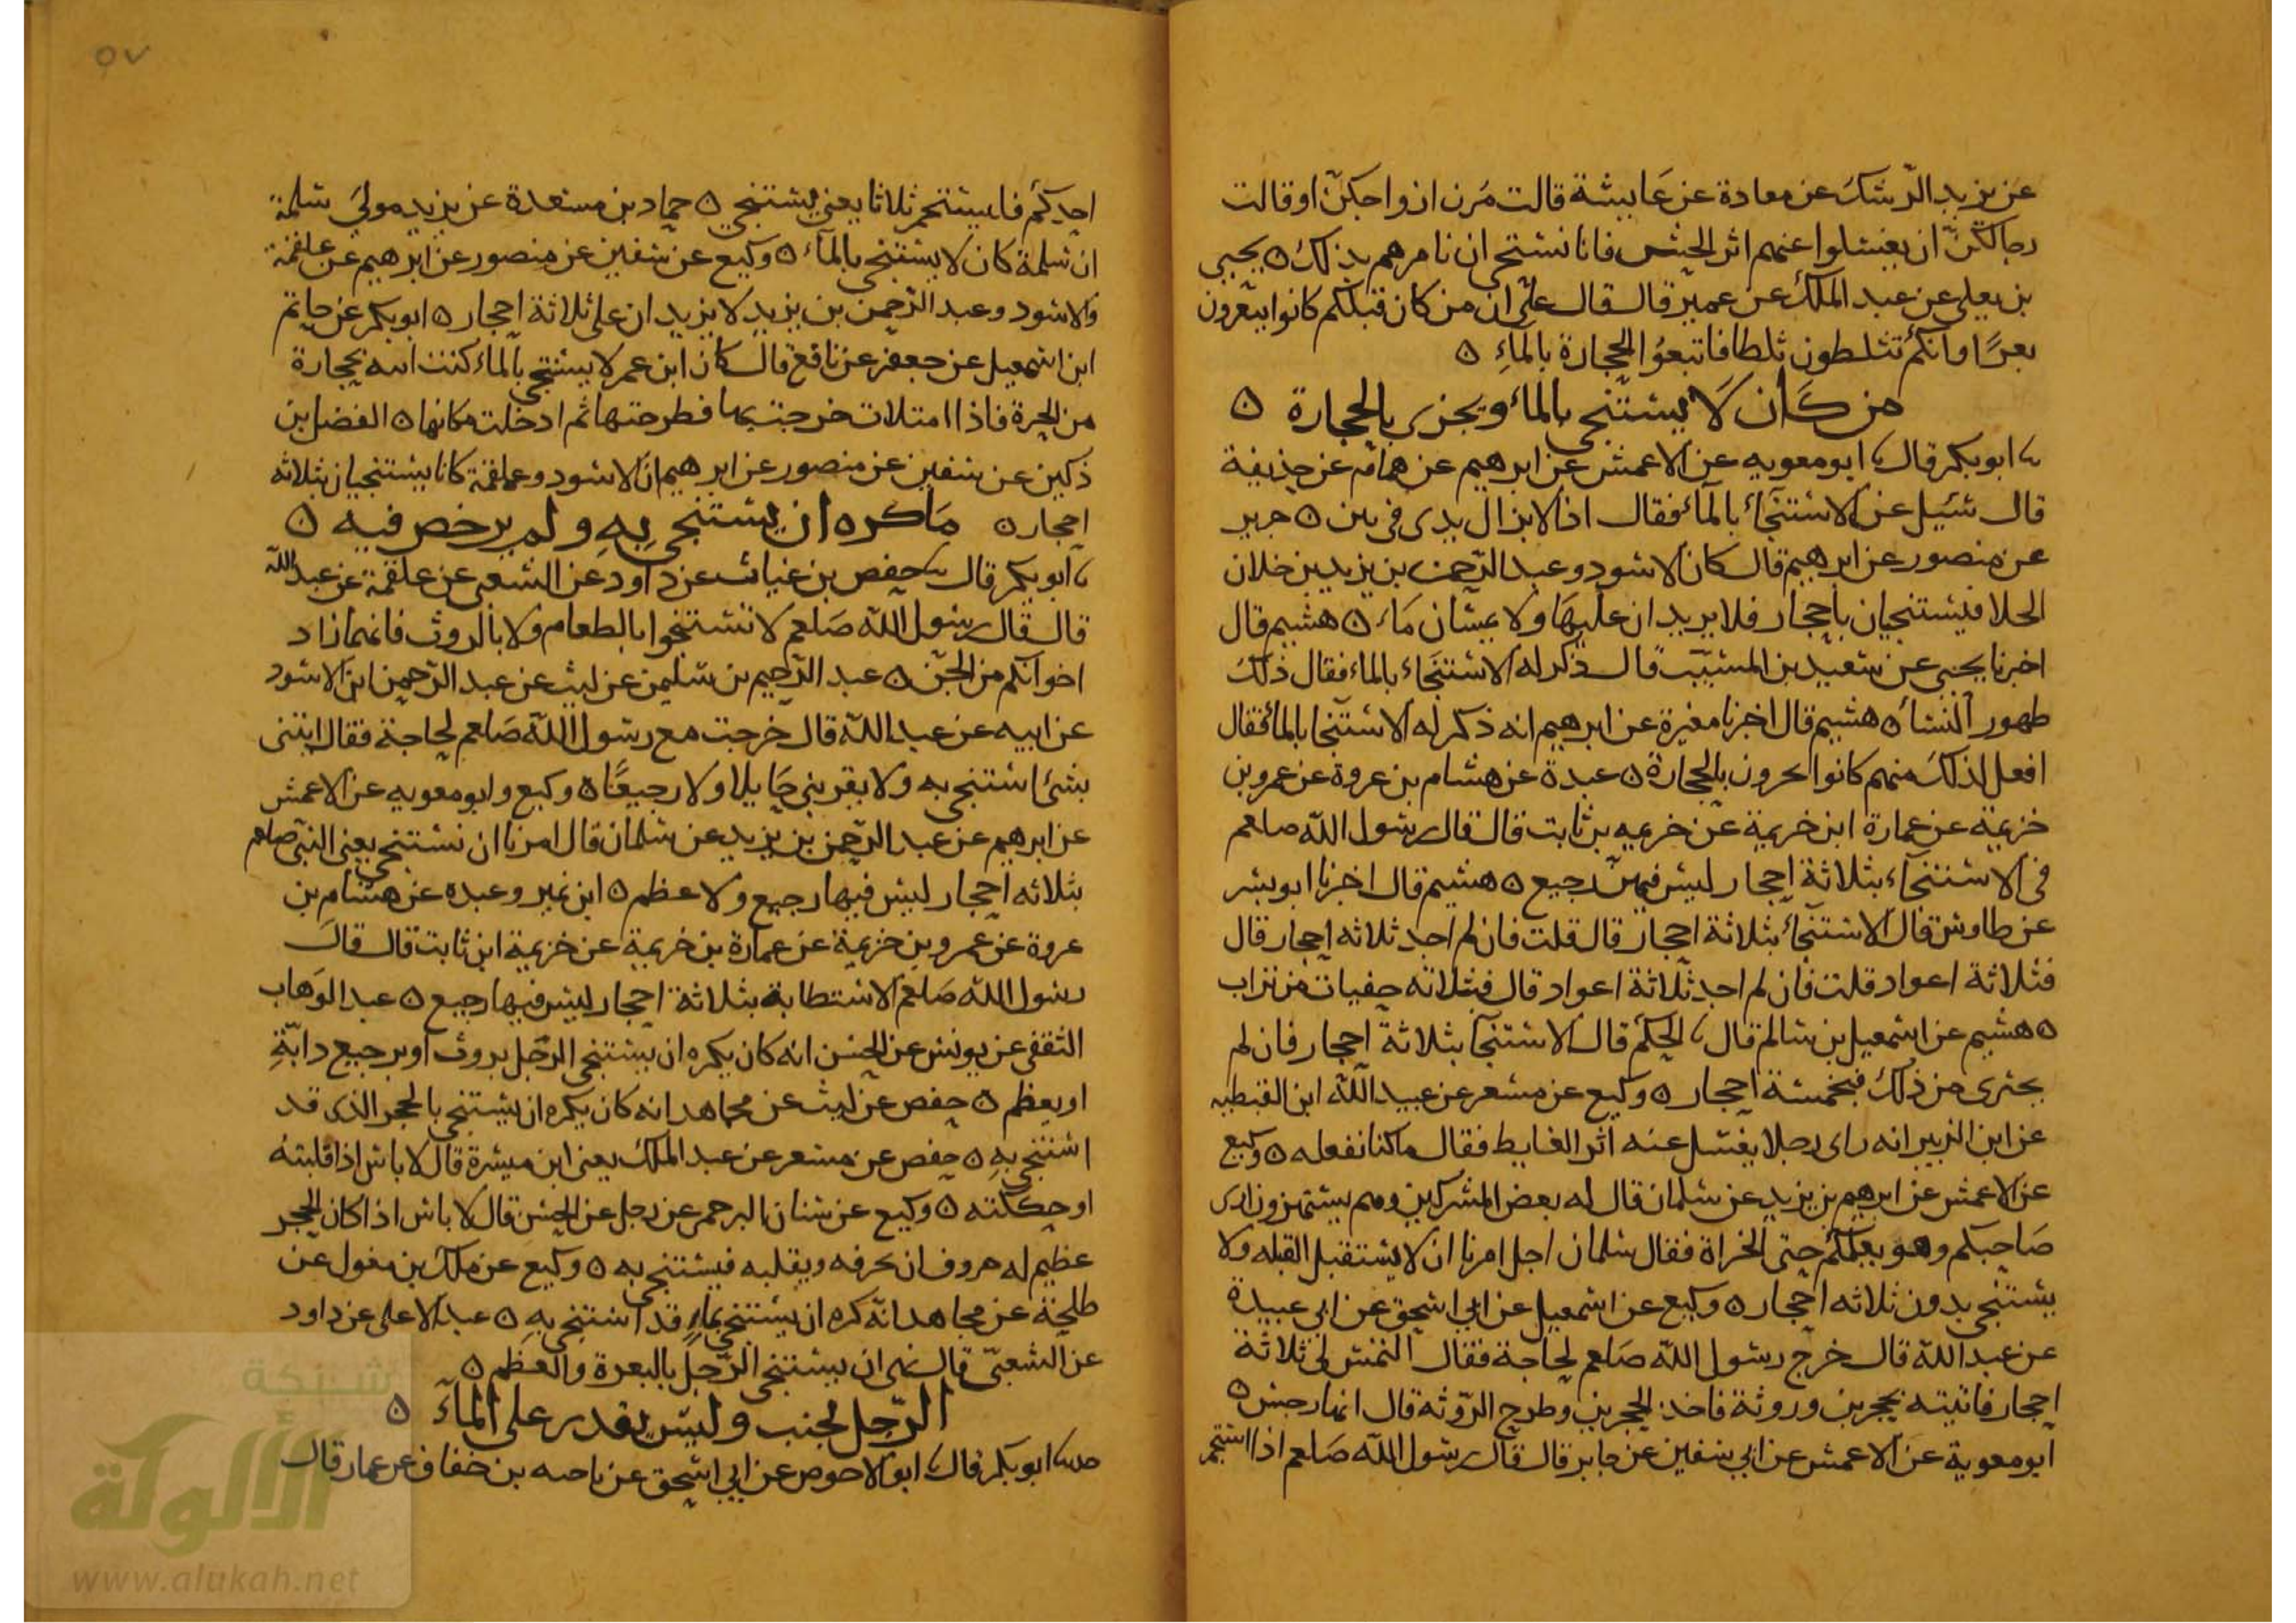 عن يزيد الرشك عن معاذة عن عايشة قالت مرن ازواجكن او قالت
رجالكن ان يغسلوا عنهم اثر الحش فانا نستحي ان نامرهم بذلك ٥ يحيى
بن يعلى عن عبد الملك عن عمير قال قال علي ان من كان قبلكم كانوا يبعرون
بعرًا وانكم تثلطون ثلطا فاتبعوا الحجارة بالماءِ ٥
من كان لا يستنجي بالماء ويجزى بالحجارة ٥
ابو بكر قال ابو معويه عن الاعمش عن ابرهيم عن همام عن حذيفة
قال سئيل عن الاستنجاء بالماء فقال اذا لا يزال يدى في نتن ٥ جرير
عن منصور عن ابرهيم قال كان الاسود وعبد الرحمن بن يزيد يدخلان
الخلا فيستنجيان باحجار فلا يزيدان عليها ولا يمسان ماء ٥ هشيم قال
اخبرنا يحيى عن سعيد بن المسيب قال ذكر له الاستنجاء بالماء فقال ذلك
طهور النسا ٥ هشيم قال اخبرنا مغيرة عن ابرهيم انه ذكر له الاستنجا بالماء فقال
افعل لذلك منهم كانوا يجزون بالحجارة ٥ عبدة عن هشام بن عروة عن عمرو بن
خزيمة عن عمارة ابن خزيمة عن خزيمه بن ثابت قال قال رسول الله صلعم
في الاستنجاء بثلاثة احجار ليس فيهن رجيع ٥ هشيم قال اخبرنا ابو بشر
عن طاوس قال الاستنجاء بثلاثة احجار قال قلت فان لم اجد ثلاثه احجار قال
فثلاثة اعواد قلت فان لم اجد ثلاثة اعواد قال فثلاثه حفيات من تراب
٥ هشيم عن اسمعيل بن سالم قال الحكم قال الاستنجا بثلاثة احجار فان لم
يجترى من ذلك فبخمسة احجار ٥ وكيع عن مسعر عن عبيد الله ابن القبطيه
عن ابن الزبير انه راى رجلا يغسل عنه اثر الغايط فقال ما كنا نفعله ٥ وكيع
عن الاعمش عن ابرهيم بن يزيد عن سلمان قال له بعض المشركين وهم يستهزون ارى
صاحبكم وهو يعلمكم حتى الخراة فقال سلمان اجل امرنا ان لا يستقبل القبله ولا
يستنجى بدون ثلاثه احجار ٥ وكيع عن اسمعيل عن ابي اسحق عن ابي عبيدة
عن عبد الله قال خرج رسول الله صلعم لحاجة فقال التمس لي ثلاثة
احجار فاتيته بحجرين وروثة فاخذ الحجرين وطرح الروثة قال انها رجس ٥
ابو معوية عن الاعمش عن ابي سفين عن جابر قال قال رسول الله صلعم اذا استجمر
٥٧
احدكم فليستجمر ثلاثا يعني يستنجي ٥ حماد بن مسعدة عن يزيد مولى سلمة
ان سلمة كان لا يستنجى بالماء ٥ وكيع عن سفين عن منصور عن ابرهيم عن علقمة
والاسود وعبد الرحمن بن يزيد لا يزيدان على ثلاثة احجار ٥ ابو بكر عن حاتم
ابن اسمعيل عن جعفر عن نافع قال كان ابن عمر لا يستنجي بالماء كنت اتيه بحجارة
من الحرة فاذا امتلات خرجت بها فطرحتها ثم ادخلت مكانها ٥ الفضل بن
ذكين عن سفين عن منصور عن ابرهيم ان الاسود وعلقمة كانا يستنجيان بثلاثه
احجار ٥ ما كره ان يستنجى بهِ ولم يرخص فيه ٥
ابو بكر قال حفص بن غياث عن داود عن الشعبي عن علقمة عن عبد الله
قال قال رسول الله صلعم لا تستنجوا بالطعام ولا بالروث فانهما زاد
اخوانكم من الجن ٥ عبد الرحيم بن سليمن عن ليث عن عبد الرحمن ابن الاسود
عن ابيه عن عبد الله قال خرجت مع رسول الله صلعم لحاجة فقال ايتنى
بشئ استنجى به ولا يقربني حايلا ولا رجيعًا ٥ وكيع وابو معويه عن الاعمش
عن ابرهيم عن عبد الرحمن بن يزيد عن سلمان قال امرنا ان نستنجى يعني النبي صلعم
بثلاثه احجار ليس فيها رجيع ولا عظم ٥ ابن نمير وعبدة عن هشام بن
عروة عن عمرو بن خزيمة عن عمارة بن خزيمة عن خزيمة ابن ثابت قال قال
رسول الله صلعم الاستطابة بثلاثة احجار ليس فيها رجيع ٥ عبد الوهاب
الثقفي عن يونس عن الحسن انه كان يكره ان يستنجى الرجل بروث او برجيع دابةِ
او بعظم ٥ حفص عن ليث عن مجاهد انه كان يكره ان يستنجى بالحجر الذى قد
استنجى بهِ ٥ حفص عن مسعر عن عبد الملك يعنى ابن ميسرة قال لا باس اذا قلبته
او حككته ٥ وكيع عن سنان البرجمى عن رجل عن الحسن قال لا باس اذا كان الحجر
عظيم له حروف ان يحرفه ويقلبه فيستنجى به ٥ وكيع عن ملك بن مغول عن
طلحة عن مجاهد انه كره ان يستنجى بماءٍ قد استنجى بهِ ٥ عبد الاعلى عن داود
عن الشعبي قال نهى ان يستنجى الرجل بالبعرة والعظم ٥
الرجل يجنب وليس يقدر على الماء ٥
ابو بكر قال ابو الاحوص عن ابي اسحق عن ناجيه بن خفاف عن عمار قال
شبكة
الألوكة
www.alukah.net